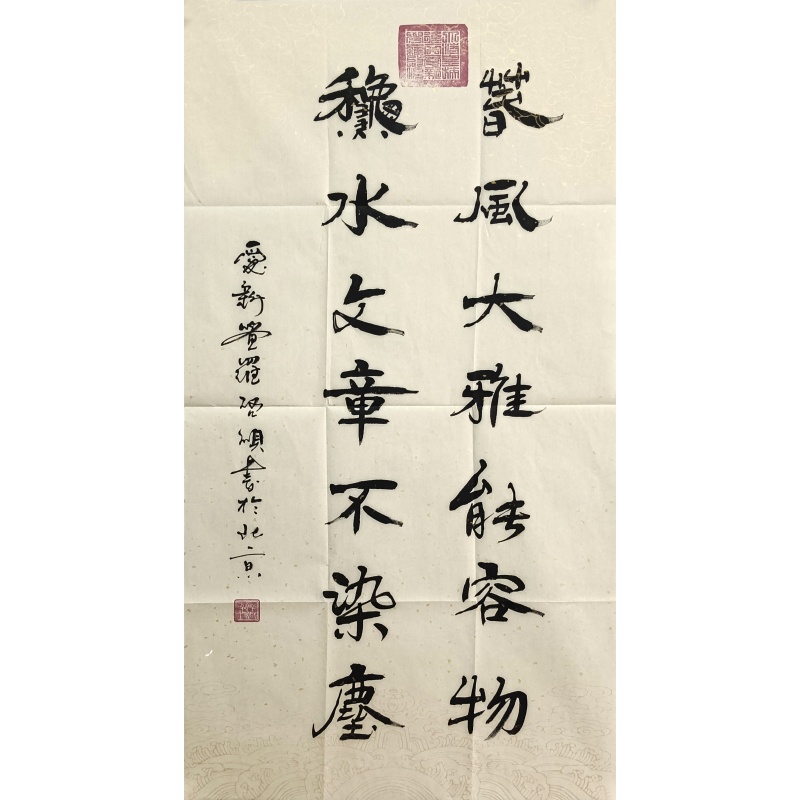 萅風大雅能容物
龝水文章不染塵
愛新覺羅啓書於北京